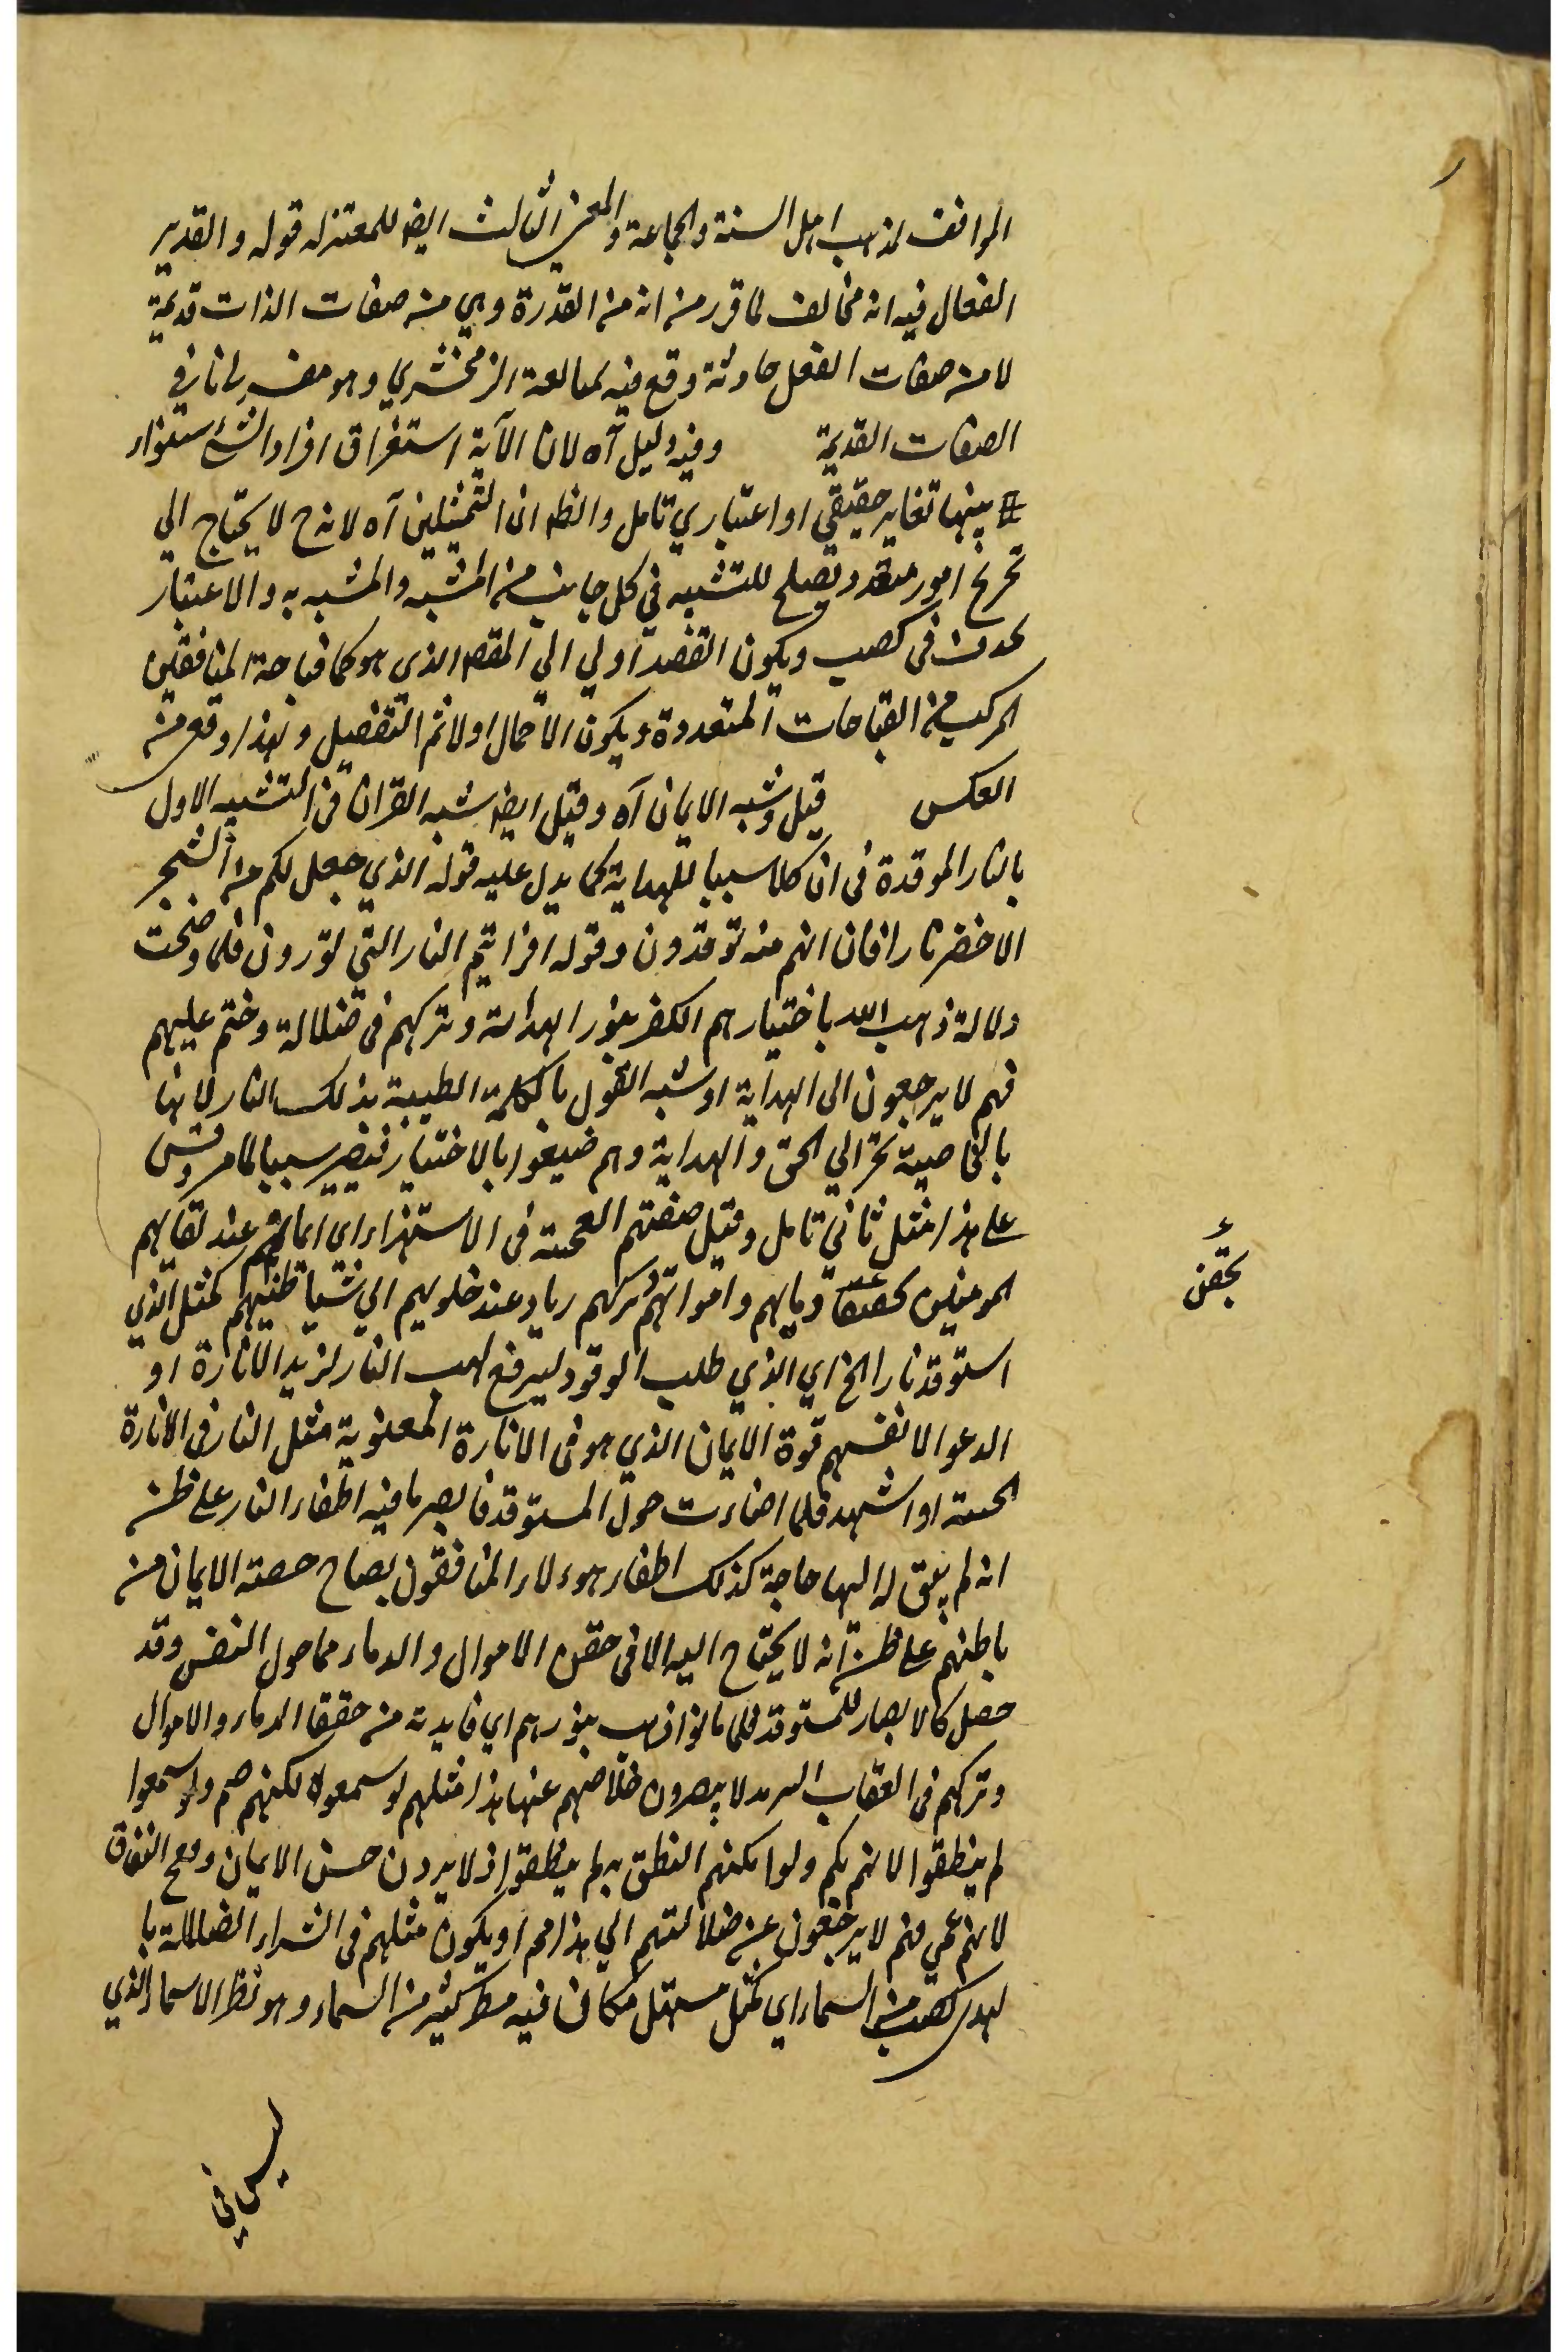 الموافق لمذهب اهل السنة والجماعة والمعنى الثالث ايضا للمعتزله قوله والقدير
الفعال فيه انه مخالف لما قرر من انه من القدرة وهي من صفات الذات قديمة
لا من صفات الفعل حادثة وقع فيه لمتابعة الزمخشري وهو معتزلي نافي
الصفات القديمة وفيه دليل آه لان الآية استغراق افراد الشئ سواء
بينها تغاير حقيقي او اعتباري تامل والظ ان التمثيلين آه لانه ح لا يحتاج الى
تخرج امور متعدد يصلح للتشبيه في كل جانب من المشبه والمشبه به والاعتبار
كصيب ويكون القصد اولي الى المقصد الذي هو كما قباحة المنافقين
المركب من القباحات المتعددة ويكون الاجمال اولا ثم التفصيل وهذا اوقع من
العكس قيل وشبه الايمان آه وقيل ايضا شبه القران في التشبيه الاول
بالنار الموقدة في ان كلا سببا للهداية كما يدل عليه قوله الذي جعل لكم من الشجر
الاخضر نارا فان انتم منه توقدون وقوله افرايتم النار التي تورون فلما وضحت
دلالة ذهب الله باختيارهم الكفر بنور الهداية وتركهم في ضلالة وختم عليهم
فهم لا يرجعون الى الهداية او شبه القول بالكلمة الطيبة بذلك النار لانها
بالخاصية تجر الى الحق والهداية وهم ضيعوا بالاختيار فيصير سببا لما مر وقس
على هذا مثل ثاني تامل وقيل صفتهم العجيبة في الاستهزاء اي ايمانهم عند لقائهم
المومنين دمايهم واموالهم وتركهم ريا وعند خلوهم الى شياطينهم كمثل الذي
استوقد نارا الخ اي الذي طلب الوقود ليرفع لهب النار لمزيد الانارة او
ادعوا لانفسهم قوة الايمان الذي هو في الانارة المعنوية مثل النار في الانارة
الحسية او اشهد فلما اضاءت حول المستوقد فابصر ما فيه اطفاء النار على ظن
انه لم يبق له اليها حاجة كذلك اطفاء هوءلاء المنافقون حصته الايمان من
باطنهم على ظن انه لا يحتاج اليه الا في حقن الاموال والدماء مما حول النفس وقد
حصل كالابصار للمستوقد فلما ماتوا ذهب بنورهم اي فايدته من حقن الدماء والاموال
وتركهم في العقاب السرمد لا يبصرون خلاصهم عنها هذا مثلهم لو سمعوه لكنهم صم ولو سمعوا
لم ينطقوا لانهم بكم ولو امكنهم النطق به لم ينطقوا اذ لا يرون حسن الايمان وقبح النفاق
لانهم عمي فهم لا يرجعون عن ضلالتهم الى هذا او يكون مثلهم في اشتراء الضلالة با
لهدى كصيب من السماء اي كمثل مكان فيه مطر كثير من السماء وهو نظر الاسماء الذي
ليس في
بحقن